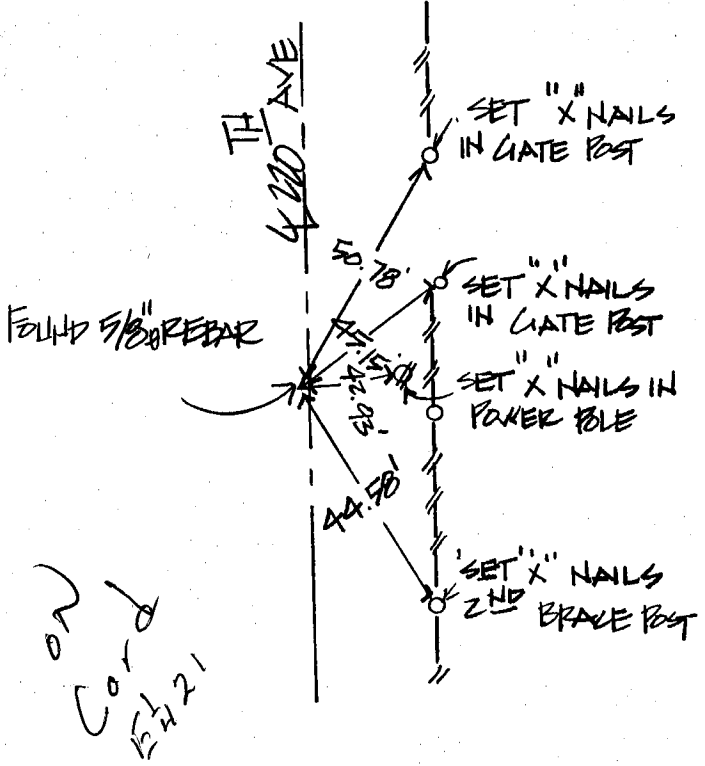 220TH AVE
SET "X" NAILS
IN GATE POST
50.78'
SET "X" NAILS
IN GATE POST
FOUND 5/8"φ REBAR
45.15'
SET "X" NAILS IN
POWER POLE
42.93'
44.58'
SET "X" NAILS
2ND BRACE POST
on
Card
E 1/4 21